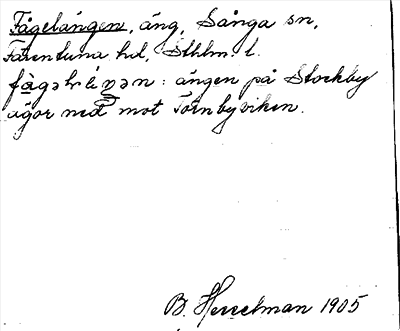 Fågelängen, äng, Sånga sn,
Färentuna hd, Sthlm. l.
: ängen på Stockby
ägor ned mot Törnbyviken.
B. Hesselman 1905